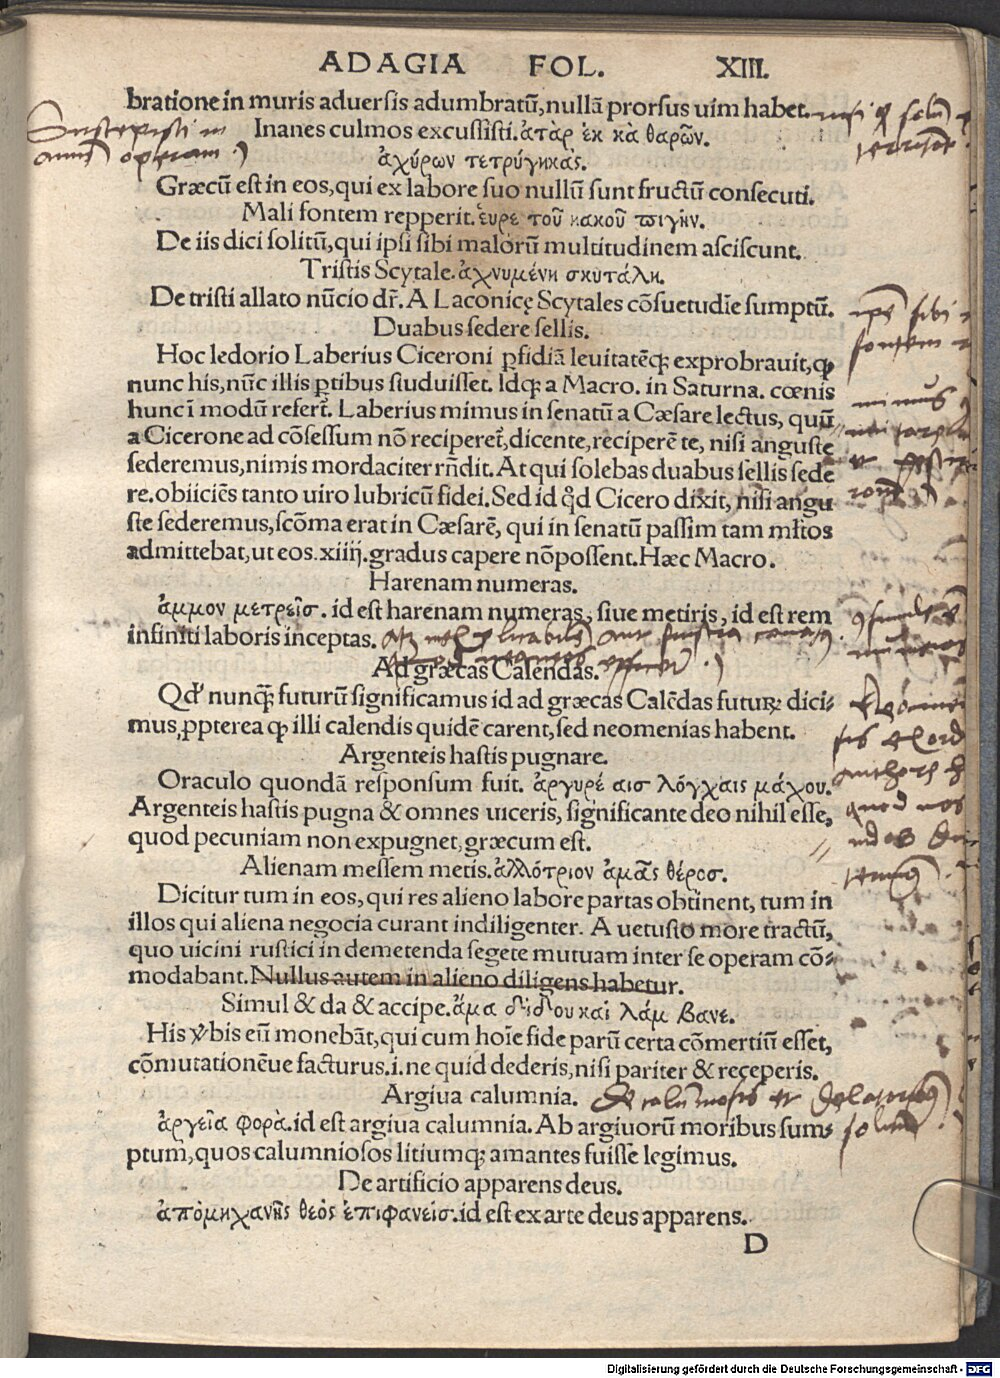 ADAGIA FOL. XIII.
bratione in muris aduersis adumbratū, nullā prorsus uim habet.
Inanes culmos excussisti. ἀτὰρ ἐκ κὰ θαρῶν.
ἀχύρων τετρύγηκας.
Græcū est in eos, qui ex labore suo nullū sunt fructū consecuti.
Mali fontem repperit. ἑυρε τοῦ κακοῦ πιγὴν.
De iis dici solitū, qui ipsi sibi malorū multitudinem asciscunt.
Tristis Scytale. ἀχνυμένη σκυτάλη.
De tristi allato nūcio dr̄. A Laconicę Scytales cōsuetudīe sumptū.
Duabus sedere sellis.
Hoc ledorio Laberius Ciceroni ꝑfidiā leuitatēq; exprobrauit, ꝙ
nunc his, nūc illis ꝑtibus studuisset. Idq; a Macro. in Saturna. cœnis
hunc ī modū refert̄. Laberius mimus in senatū a Cæsare lectus, quū
a Cicerone ad cōsessum nō reciperet̄, dicente, reciperē te, nisi anguste
sederemus, nimis mordaciter rn̄dit. At qui solebas duabus sellis sede
re. obiiciēs tanto uiro lubricū fidei. Sed id qd̄ Cicero dixit, nisi angu
ste sederemus, scōma erat in Cæsarē, qui in senatū passim tam ml̄tos
admittebat, ut eos. xiiij. gradus capere nōpossent. Hæc Macro.
Harenam numeras.
ἀμμον μετρεῖσ. id est harenam numeras, siue metiris, id est rem
infiniti laboris inceptas.
Ad græcas Calendas.
Qd̄ nunꝗ̄ futurū significamus id ad græcas Calēdas futuꝝ dici-
mus, ꝓpterea ꝙ illi calendis quidē carent, sed neomenias habent.
Argenteis hastis pugnare.
Oraculo quondā responsum fuit. ἀργυρέ αισ λόγχαις μάχου.
Argenteis hastis pugna & omnes uiceris, significante deo nihil esse,
quod pecuniam non expugnet, græcum est.
Alienam messem metis. ἀλλότριον ἀμᾶς θέροσ.
Dicitur tum in eos, qui res alieno labore partas obtinent, tum in
illos qui aliena negocia curant indiligenter. A uetusto more tractū,
quo uicini rustici in demetenda segete mutuam inter se operam cō-
modabant. Nullus autem in alieno diligens habetur.
Simul & da & accipe. ἅμα δίδου καὶ λάμ βανε.
His v̄bis eū monebāt, qui cum hoīe fide parū certa cōmertiū esset,
cōmutationēue facturus. i. ne quid dederis, nisi pariter & receperis.
Argiua calumnia.
ἀργεία φορὰ. id est argiua calumnia. Ab argiuorū moribus sum-
ptum, quos calumniosos litiumq; amantes fuisse legimus.
De artificio apparens deus.
ἀπὸμηχανῆς θεὸς ἐπιφανεὶσ. id est ex arte deus apparens.
D
Digitalisierung gefördert durch die Deutsche Forschungsgemeinschaft - DFG